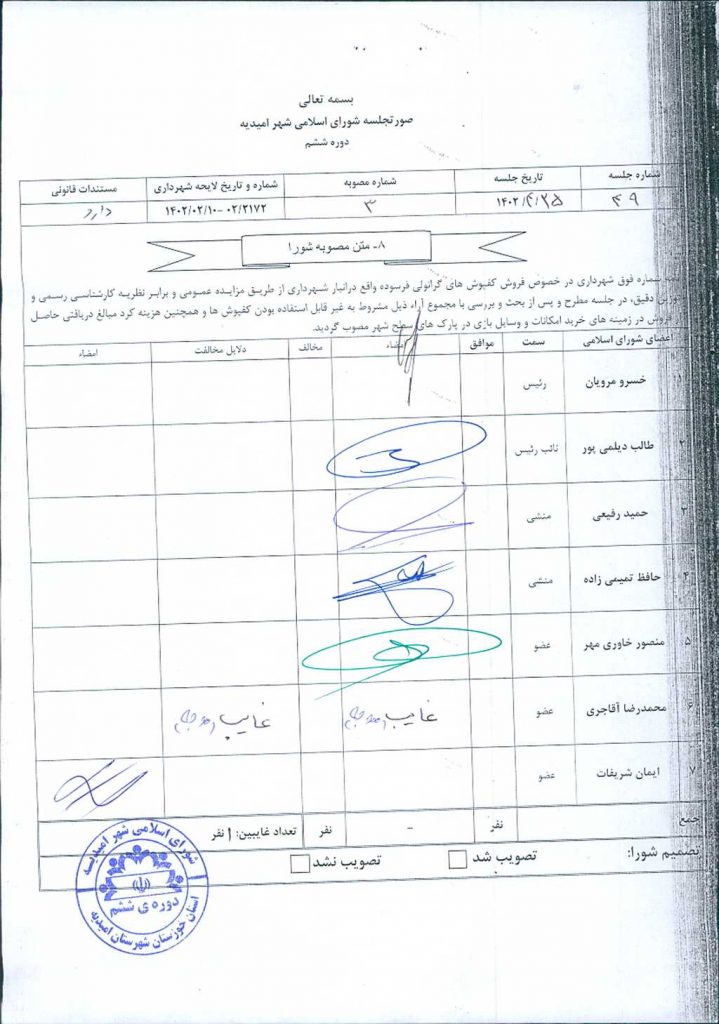 بسمه تعالی
صورتجلسه شورای اسلامی شهر امیدیه
دوره ششم
شماره جلسه تاریخ جلسه شماره مصوبه شماره و تاریخ لایحه شهرداری مستندات قانونی
۴۹ ۱۴۰۲/۴/۲۵ ۳ ۰۲/۲۱۷۲-۱۴۰۲/۰۲/۱۰ دارد
۸- متن مصوبه شورا
شماره فوق شهرداری در خصوص فروش کفپوش های گرانولی فرسوده واقع درانبار شهرداری از طریق مزایده عمومی و برابر نظریه کارشناسی رسمی و
دقیق، در جلسه مطرح و پس از بحث و بررسی با مجموع آراء ذیل مشروط به غیر قابل استفاده بودن کفپوش ها و همچنین هزینه کرد مبالغ دریافتی حاصل
فروش در زمینه های خرید امکانات و وسایل بازی در پارک های سطح شهر مصوب گردید.
اعضای شورای اسلامی سمت موافق امضاء مخالف دلایل مخالفت امضاء
۱ خسرو مرویان رئیس
۲ طالب دیلمی پور نائب رئیس
۳ حمید رفیعی منشی
۴ حافظ تمیمی زاده منشی
۵ منصور خاوری مهر عضو
۶ محمدرضا آقاجری عضو غایب غایب
۷ ایمان شریفات عضو
جمع نفر - نفر تعداد غایبین: ۱ نفر
تصمیم شورا: تصویب شد تصویب نشد
شورای اسلامی شهر امیدیه
دوره ی ششم
استان خوزستان شهرستان امیدیه